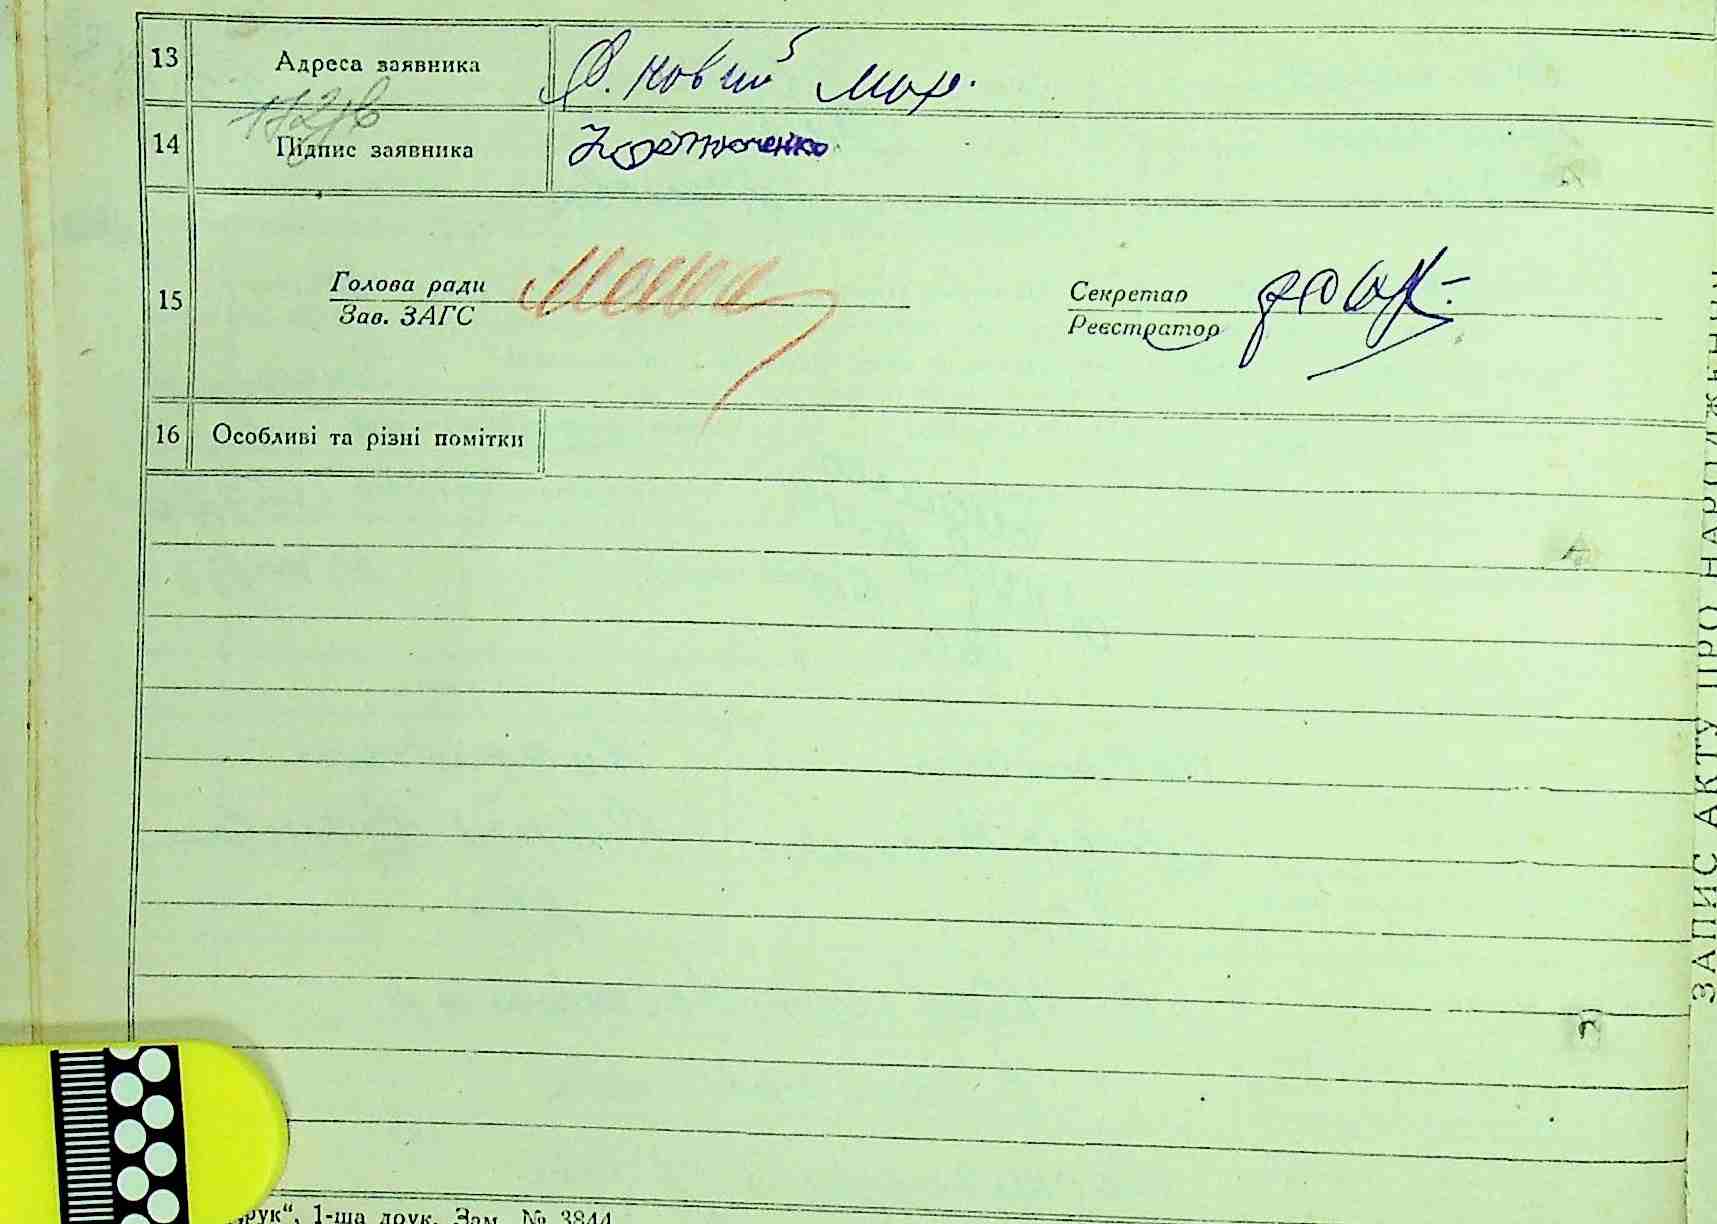 13 Адреса заявника Ф. новий Мох.
14 Підпис заявника
15
Голова ради
Зав. ЗАГС
Секретар
Реєстратор
16 Особливі та різні помітки
ЗАПИС АКТУ ПРО НАРОДЖЕННЯ
друк“, 1-ша друк. Зам. № 3844